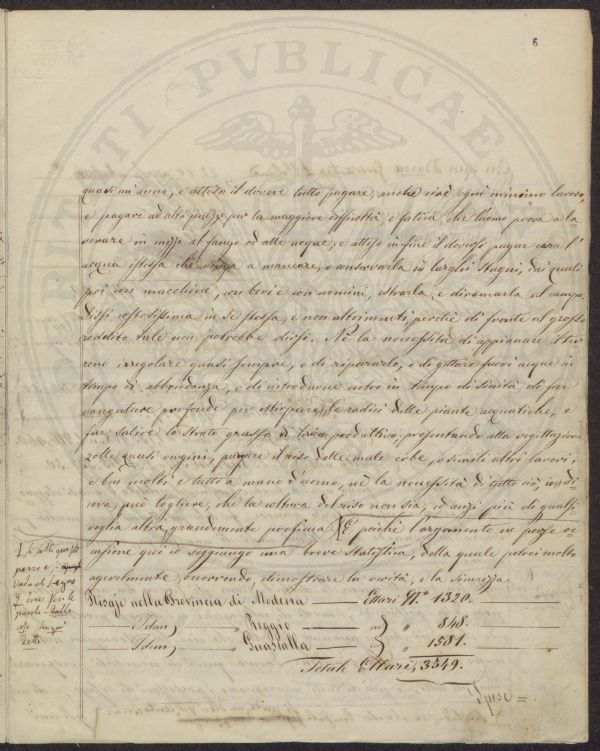 6
quasi un'anno, e atteso il dovere tutto pagare, anche cioè ogni minimo lavoro,
e pagare ad alto prezzo per la maggiore difficoltà, e fatica, che l'uomo prova a la=
vorare in mezzo al fango od alle acque, e atteso in fine il doversi pagar cara l'
acqua istessa che a mancare, o conservarla in larghi stagni, dai quali
poi con macchine, con bovi e con uomini, estrarla, e diramarla al campo.
Dissi costosissima in se stessa, e non altrimenti, perchè di fronte al grosso
reddito tale non potrebbe dirsi. Nè la necessità di appianare il ter=
reno irregolare quasi sempre, o di ripararlo, o di gittare fuori acque in
tempo di abbondanza, o di introdurne entro in tempo di siccità, di far
vangature profonde per estirpare le radici delle piante acquatiche, e
far salire lo strato grasso di terra produttivo, presentando alla vegettazione
zolle quasi vergini, purgare il riso dalle male erbe, o simili altri lavori,
e ben molti e tutti a mano d'uomo, nè la necessità di tutto ciò, ondi=
ceva, può togliere, che la coltura del riso non sia, ed anzi più di qualsi=
voglia altra, grandemente proficua. E poichè l'argomento
casione qui io soggiungo una breve Statistica, dalla quale potrei molto
agevolmente, occorrendo, dimostrare la verità, e la sicurezza.
Risaje nella Provincia di Modena — Ettari N.° 1320.
— Idem, " Reggio — " " 848.
— Idem " Guastalla — " " 1581.
Totale Ettari, 3549.
Spese =